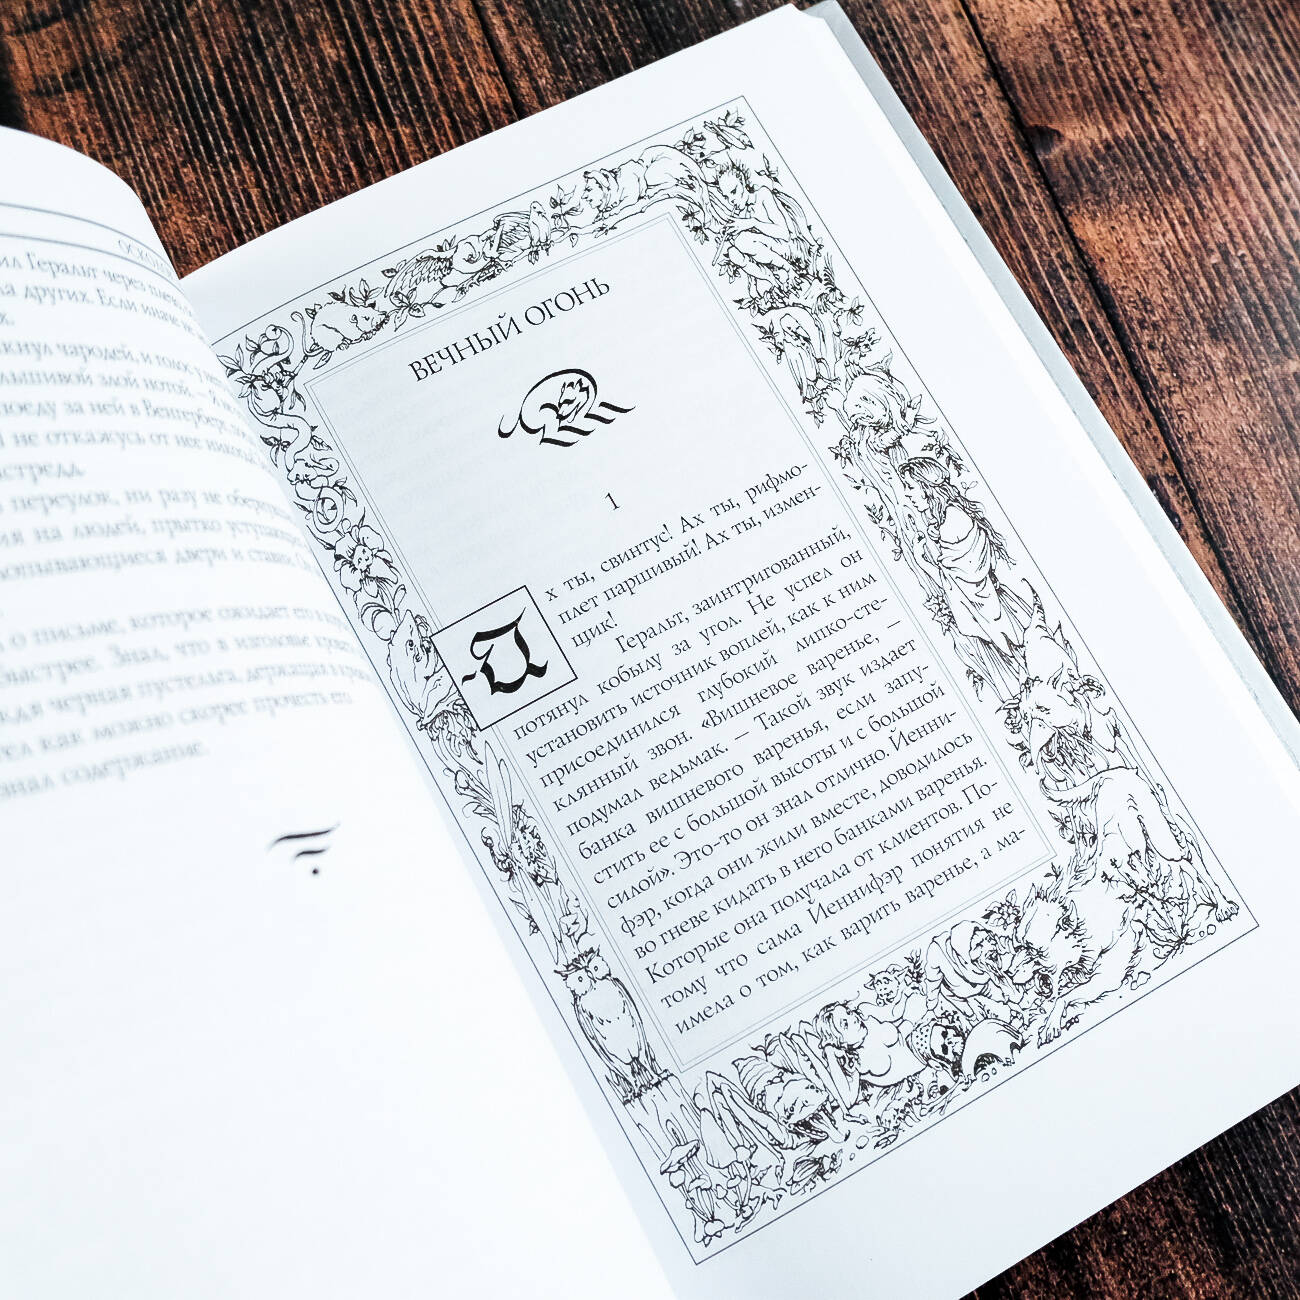 ил Геральт через плечо
а других. Если иначе не
х.
кнул чародей, и голос у
льшивой злой нотой. – Я
поеду за ней в Венгерберг,
не откажусь от нее никогда.
стредд.
переулок, ни разу не
ия на людей, прытко
опывающиеся двери и
о письме, которое ожидает его в
быстрее. Знал, что в изголовье
ждя черная пустельга, держащая в
тел как можно скорее прочесть его
знал содержание.
ВЕЧНЫЙ ОГОНЬ
1
Ах ты, свинтус! Ах ты, рифмо-
плет паршивый! Ах ты, измен-
щик!
Геральт, заинтригованный,
потянул кобылу за угол. Не успел он
установить источник воплей, как к ним
присоединился глубокий липко-сте-
клянный звон. «Вишневое варенье, —
подумал ведьмак. — Такой звук издает
банка вишневого варенья, если запу-
стить ее с большой высоты и с большой
силой». Это-то он знал отлично. Йенни-
фэр, когда они жили вместе, доводилось
во гневе кидать в него банками варенья.
Которые она получала от клиентов. По-
тому что сама Йеннифэр понятия не
имела о том, как варить варенье, а ма-